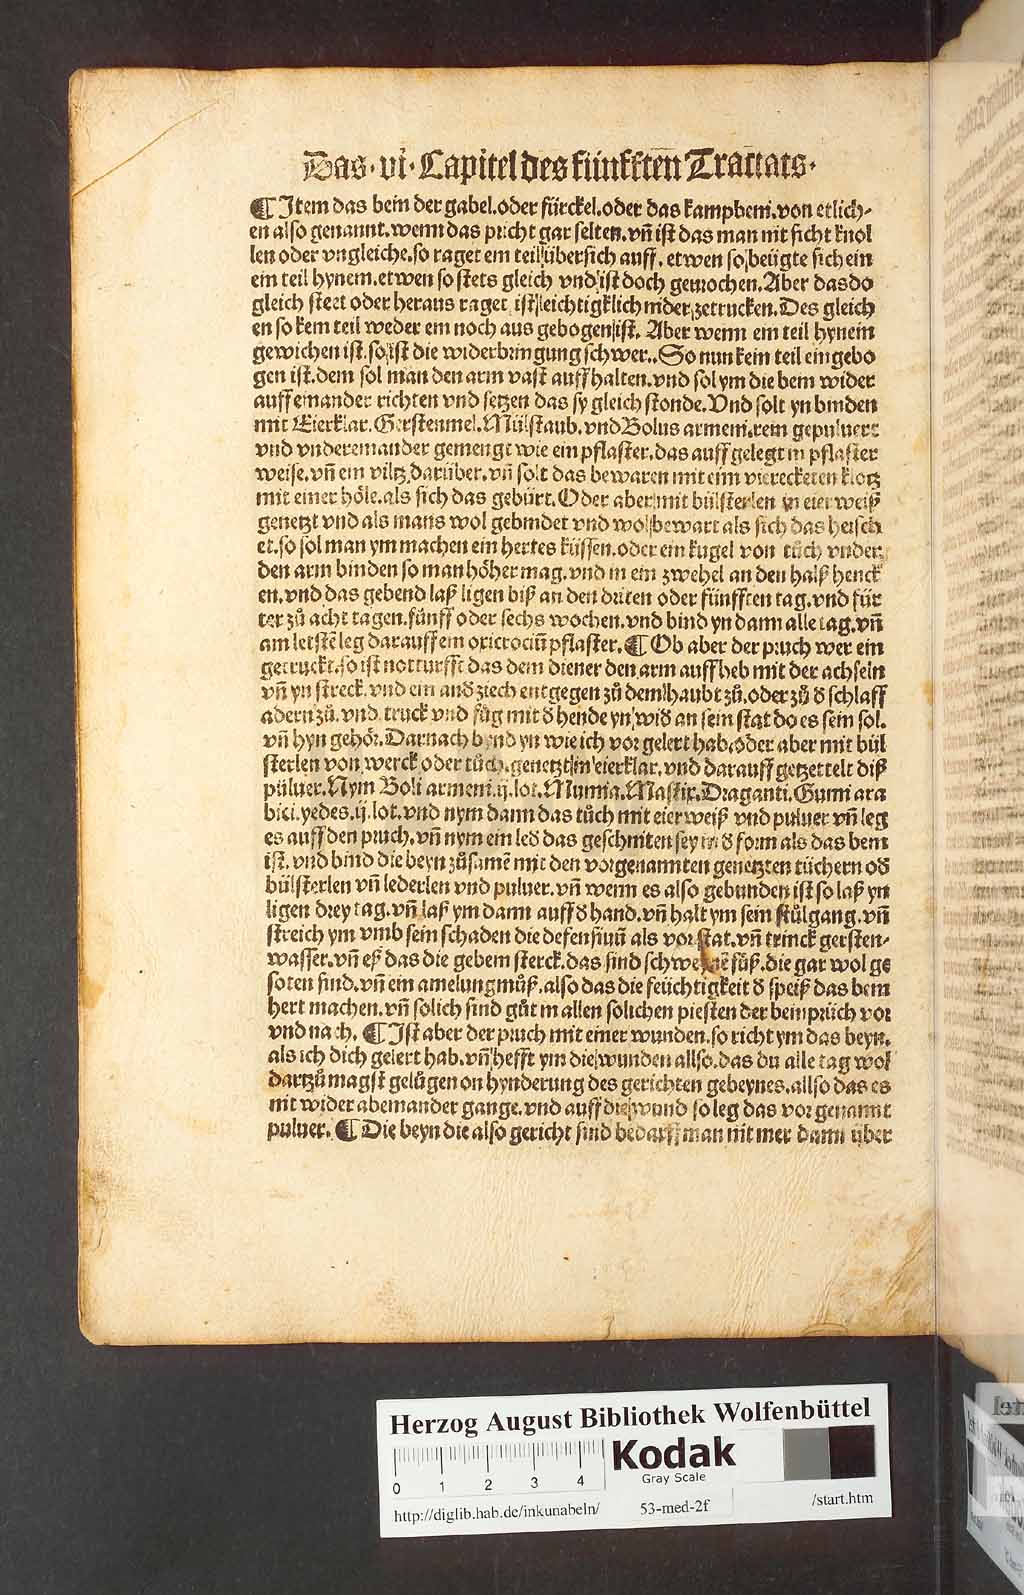 Das · vi · Capitel des fünfften Tractats ·
¶ Item das bein der gabel. oder fürckel. oder das kampbein. von etlich-
en also genannt. wenn das pricht gar selten. vn̄ ist das man nit sicht knol
len oder vngleiche. so raget ein teil übersich auff. etwen so beügte sich ein
ein teil hynein. etwen so stets gleich vnd ist doch geprochen. Aber das do
gleich steet oder heraus raget ist leichtigklich nider zetrucken. Des gleich
en so kein teil weder ein noch aus gebogen ist. Aber wenn ein teil hynein
gewichen ist. so ist die widerbringung schwer.. So nun kein teil eingebo
gen ist. dem sol man den arm vast auff halten. vnd sol ym die bein wider
auff einander richten vnd setzen das sy gleich stonde. Vnd solt yn binden
mit Eierklar. Gerstenmel. Mülstaub. vnd Bolus armeni. rein gepuluert
vnd vndereinander gemengt wie ein pflaster. das auff gelegt in pflaster
weise. vn̄ ein viltz darüber. vn̄ solt das bewaren mit eim viereckten klotz
mit einer höle. als sich das gebürt. Oder aber mit bülsterlen in eier weiß
genetzt vnd als mans wol gebindet vnd wol bewart als sich das heisch
et. so sol man ym machen ein hertes küssen. oder ein kugel von tůch vnder
den arm binden so man höher mag. vnd in ein zwehel an den halß henck
en. vnd das gebend laß ligen biß an den dritten oder fünfften tag. vnd für
ter zů acht tagen. fünff oder sechs wochen. vnd bind yn dann alle tag. vn̄
am letstē leg darauff ein oxicrociū pflaster. ¶ Ob aber der pruch wer ein
getruckt. so ist notturfft das dem diener den arm auff heb mit der achseln
vn̄ yn streck. vnd ein and̄ ziech entgegen zů dem haubt zů. oder zů d̄ schlaff
adern zů. vnd truck vnd füg mit d̄ hende yn wid̄ an sein stat do es sein sol.
vn̄ hyn gehör. Darnach bynd yn wie ich vor gelert hab. oder aber mit bül
sterlen von werck oder tůch. genetzt in eierklar. vnd darauff getzettelt diß
puluer. Nym Boli armeni. ij. lot. Mumia. Mastix. Draganti. Gumi ara
bici. yedes. ij. lot. vnd nym dann das tůch mit eier weiß vnd puluer vn̄ leg
es auff den pruch. vn̄ nym ein led̄ das geschniten sey in d̄ form als das bein
ist. vnd bind die beyn zůsamē mit den vorgenannten genetzten tüchern od̄
bülsterlen vn̄ lederlen vnd puluer. vn̄ wenn es also gebunden ist so laß yn
ligen drey tag. vn̄ laß ym dann auff d̄ hand. vn̄ halt ym sein stůlgang. vn̄
streich ym vmb sein schaden die defensiuū als vor stat. vn̄ trinck gersten-
wasser. vn̄ eß das die gebein sterck. das sind schweynē füß. die gar wol ge
soten sind. vn̄ ein amelungmůß. also das die feüchtigkeit d̄ speiß das bein
hert machen. vn̄ solich sind gůt in allen solichen priesten der beinprüch vor
vnd nach. ¶ Ist aber der pruch mit einer wunden. so richt ym das beyn.
als ich dich gelert hab. vn̄ hefft ym die wunden allso. das du alle tag wol
dartzů magst gelůgen on hynderung des gerichten gebeynes. allso das es
nit wider abeinander gange. vnd auff die wund so leg das vorgenannt
puluer. ¶ Die beyn die also gericht sind bedarff man nit mer dann über
Herzog August Bibliothek Wolfenbüttel
Kodak
Gray Scale
0 1 2 3 4
http://diglib.hab.de/inkunabeln/ 53-med-2f /start.htm